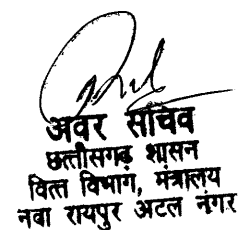 अवर सचिव
छत्तीसगढ़ शासन
वित्त विभाग, मंत्रालय
नवा रायपुर अटल नगर